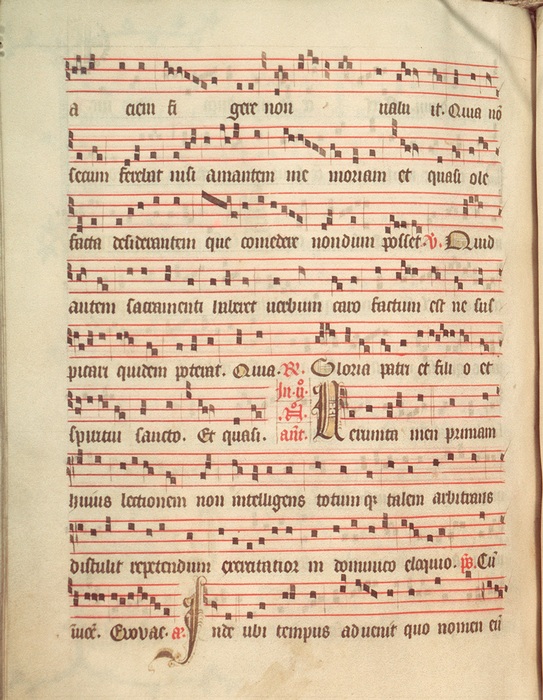 a ciem fi gere non ualu it. Quia nō
secum ferebat nisi amantem me moriam et quasi ole
facta desiderantem que comedere nondum posset. V. Quid
autem sacramenti haberet uerbum caro factum est ne sus
picari quidem poterat. Quia. R. Gloria patri et fili o et
spiritui sancto. Et quasi. In ii° añt. Uerumta men primam
huius lectionem non intelligens totum qꝫ talem arbitrans
distulit repetendum exercitatior in dominico eloquio. p̄s. Cū
Evovae. a. Inde ubi tempus aduenit quo nomen eū